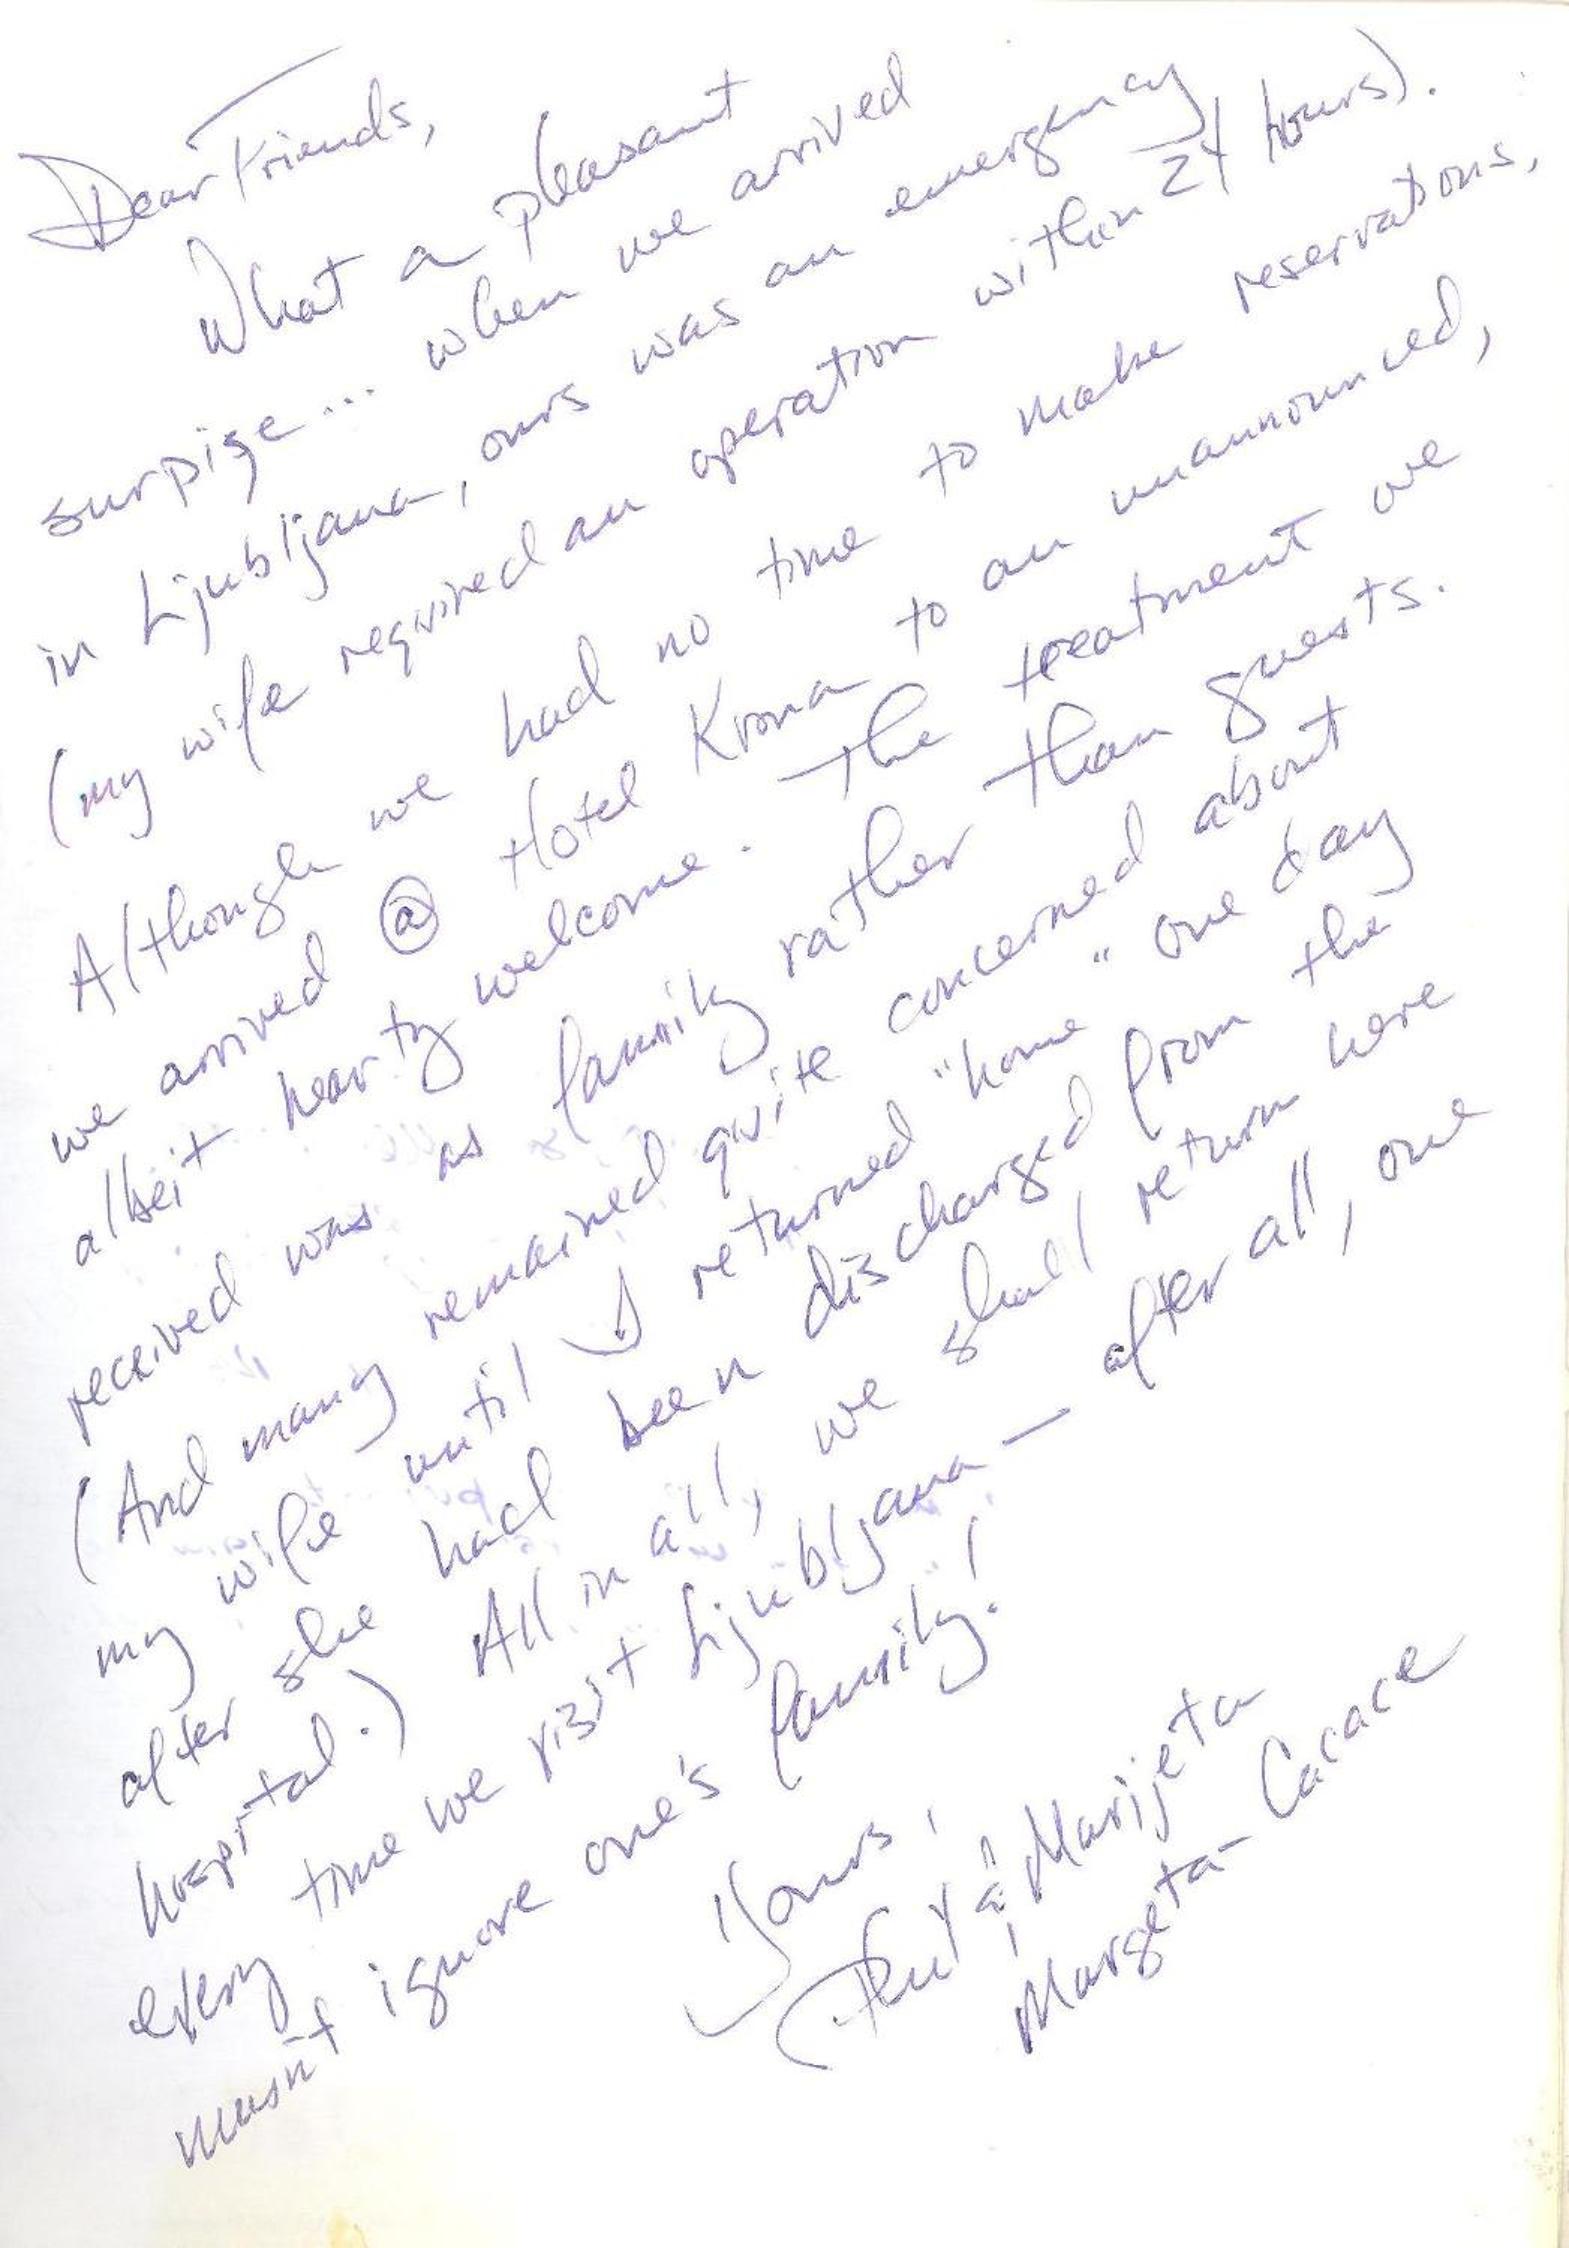 Dear Friends,
What a pleasant
surpise... when we arrived
in Ljubljana, ours was an emergency
(my wife required an operation within 24 hours).
Although we had no time to make reservations,
we arrived @ Hotel Krona to an unannounced,
albeit hearty welcome. The treatment we
received was as family rather than guests.
(And many remained quite concerned about
my wife until I returned "home" one day
after she had been discharged from the
hospital.) All in all, we shall return here
every time we visit Ljubljana — after all, one
musn't ignore one's family!
Yours,
& Marijeta
Margeta-Cacace